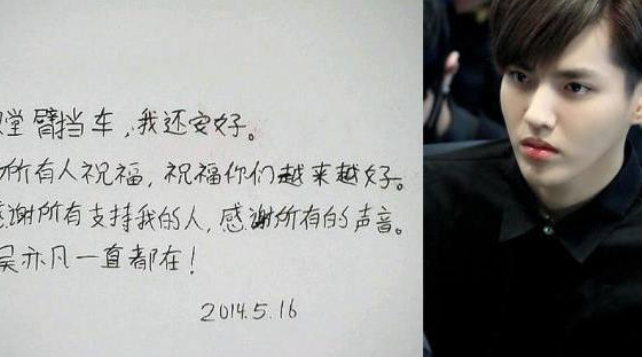 堂臂挡车,我还安好。
所有人祝福,祝福你们越来越好。
感谢所有支持我的人,感谢所有的声音。
吴亦凡一直都在!
2014.5.16